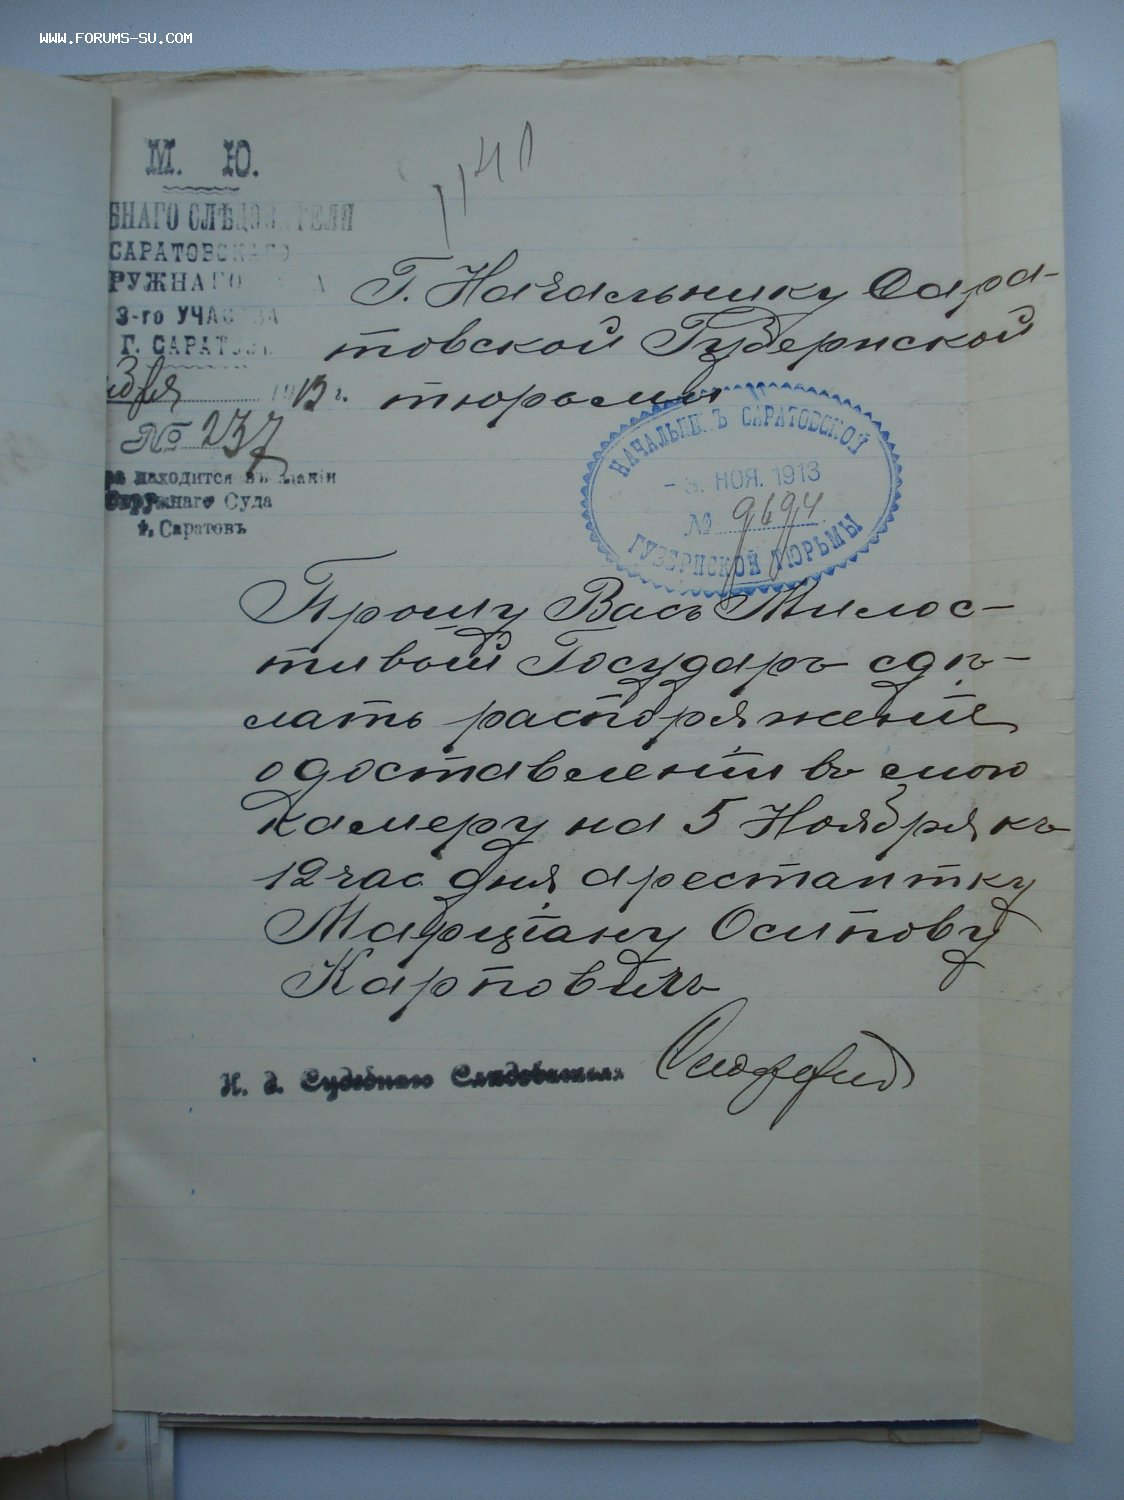 WWW.FORUMS-SU.COM
М. Ю.
БНАГО СЛѢДОВАТЕЛЯ
САРАТОВСКАГО
РУЖНАГО
3-го УЧАСТКА
Г. САРАТОВЪ
1913 г.
№ 237
ра находится въ зданіи
Окружнаго Суда
г. Саратовъ
1141
Г. Начальнику Сара-
товской Губернской
тюрьмы
НАЧАЛЬНИКЪ САРАТОВСКОЙ
- 3. НОЯ. 1913
№ 9694
ГУБЕРНСКОЙ ТЮРЬМЫ
Прошу Васъ Милос-
тивый Государь сдѣ-
лать распоряженіе
о доставленіи въ мою
камеру на 5 Ноября къ
12 час дня арестантку
Марціану Осипову
Карповичъ
И. д. Судебнаго Слѣдователя